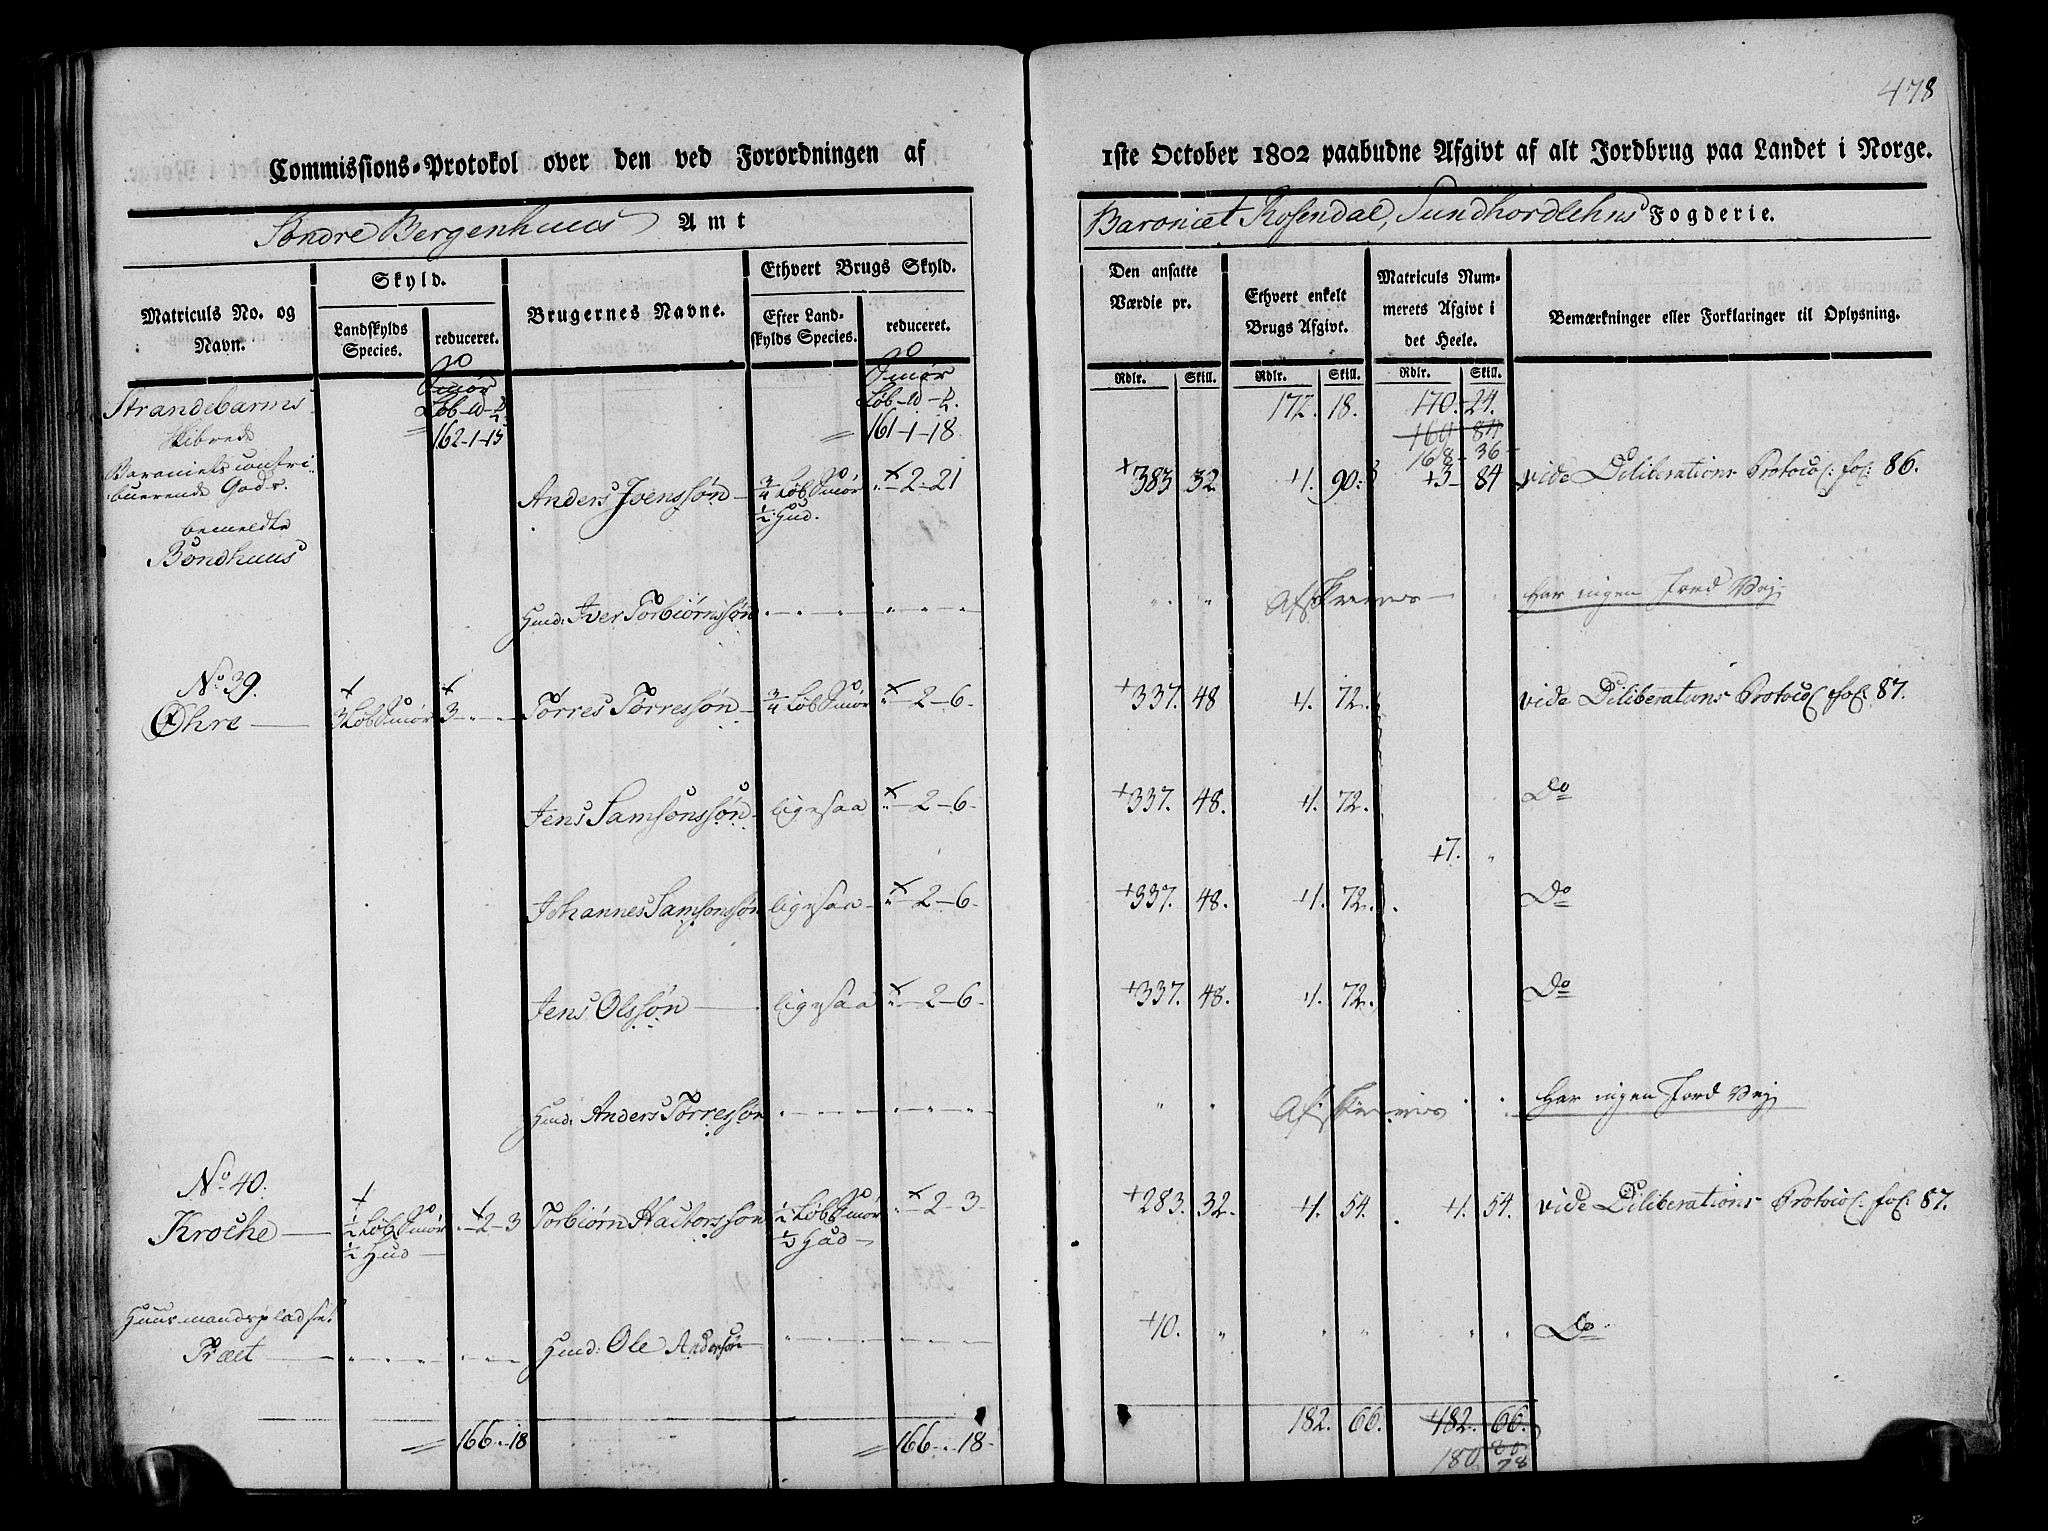 478
Commissions-Protokol over den ved Forordningen af
1ste October 1802 paabudne Afgivt af alt Jordbrug paa Landet i Norge.
Søndre Bergenhuus Amt
Baroniet Rosendal, Sundhordlehns Fogderie.
Matriculs No. og Navn.
Skyld.
Landskylds Species.
reduceret.
Brugernes Navne.
Ethvert Brugs Skyld.
Efter Landskylds Species.
reduceret.
Den ansatte Værdie pr.
Ethvert enkelt Brugs Afgivt.
Matriculs Nummerets Afgivt i det Heele.
Bemærkninger eller Forklaringer til Oplysning.
Rdlr. Skill. Rdlr. Skill. Rdlr. Skill.
Strandebarms Skibrede
Smør Løb-
162-1-15
Smør Løb-
161-1-18
172. 18. 170. 24.
169 84
168 36
Baroniets contribuerende Gods.
bemeldte
Bondhuus
Anders Ivenssøn 3/4 Løb Smør 1/2 Hud. "-2-21 383 32 1. 90. 3 84 vide Deliberations Protocol: fol: 86.
Huusd: Iver Torbiørnssøn " " Afskrives Har ingen Jord Vej
No 39.
Øhre 3 Løb Smør 3 " " Torres Torressøn 3/4 Løb Smør "-2-6. 337. 48 1. 72. vide Deliberations Protocol fol: 87.
Jens Samsonssøn ligesaa "-2-6. 337. 48. 1. 72. Do
7. "
Johannes Samsonssøn ligesaa "-2-6- 337. 48. 1. 72. Do
Jens Olssøn ligesaa "-2-6- 337. 48. 1. 72. Do
Huusd: Anders Torressøn " " Afskrives Har ingen Jord Vej
No 40.
Kroche 1/2 Løb Smør 1/2 Hud "-2-3 Torbiørn Hactorssøn 1/2 Løb Smør 1/2 Hud "-2-3- 283. 32. 1. 54. 1. 54. vide Deliberations Protocol: fol: 87.
Huusmandspladset
Træet Huusd: Ole Anderssøn 10. " " " " " Do
166-"-18 166-"-18- 182. 66. 182. 66.
180 78